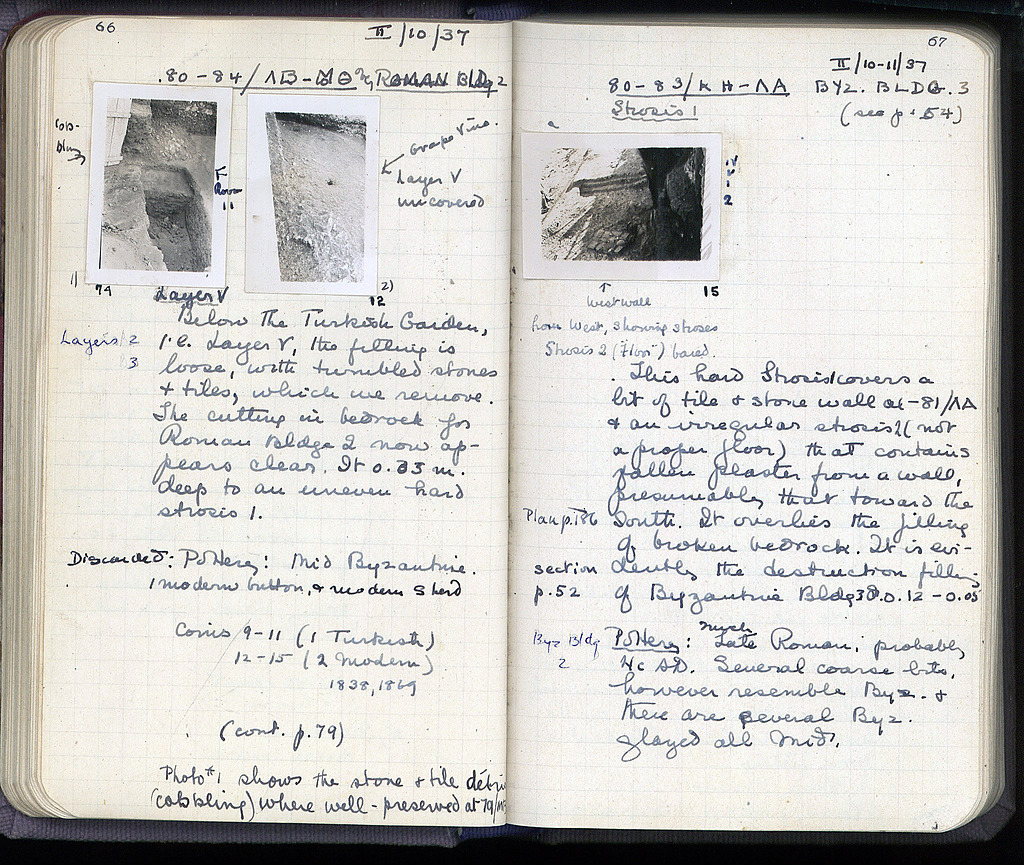 66
II/10/37
80-84/ΛΒ-ΜΘ ROMAN Bldg 2
Grape Vine.
Layer V
uncovered
Room
11
1)
74
Layer V
2)
12
Below the Turkish Garden,
Layers 2
3
i.e. Layer V, the filling is
loose, with tumbled stones
+ tiles, which we remove.
The cutting in bedrock for
Roman Bldg 2 now ap-
pears clear. It 0.33 m.
deep to an uneven hard
strosis 1.
Discarded: Pottery: Mid Byzantine.
1 modern button, + modern sherd
Coins 9-11 (1 Turkish)
12-15 (2 Modern)
1838, 1869
(cont. p. 79)
Photo #1 shows the stone + tile débris
(cobbling) where well-preserved at 79/
67
II/10-11/37
80-83/ΚΗ-ΛΑ BYZ. BLDG. 3
Strosis 1 (see p. 54)
2
15
West wall
from West, showing stroses
Strosis 2 ("Floor") bared.
This hard Strosis 1 covers a
bit of tile + stone wall at -81/ΛΑ
+ an irregular strosis 2 (not
a proper floor) that contains
fallen plaster from a wall,
presumably that toward the
Plan p. 186
South. It overlies the filling
of broken bedrock. It is evi-
section
p. 52
dently the destruction filling
of Byzantine Bldg 3 D. 0.12-0.05
Byz Bldg
2
Pottery: much Late Roman, probably
4c AD. Several coarse bits,
however resemble Byz. +
there are several Byz.
glazed all Mid.